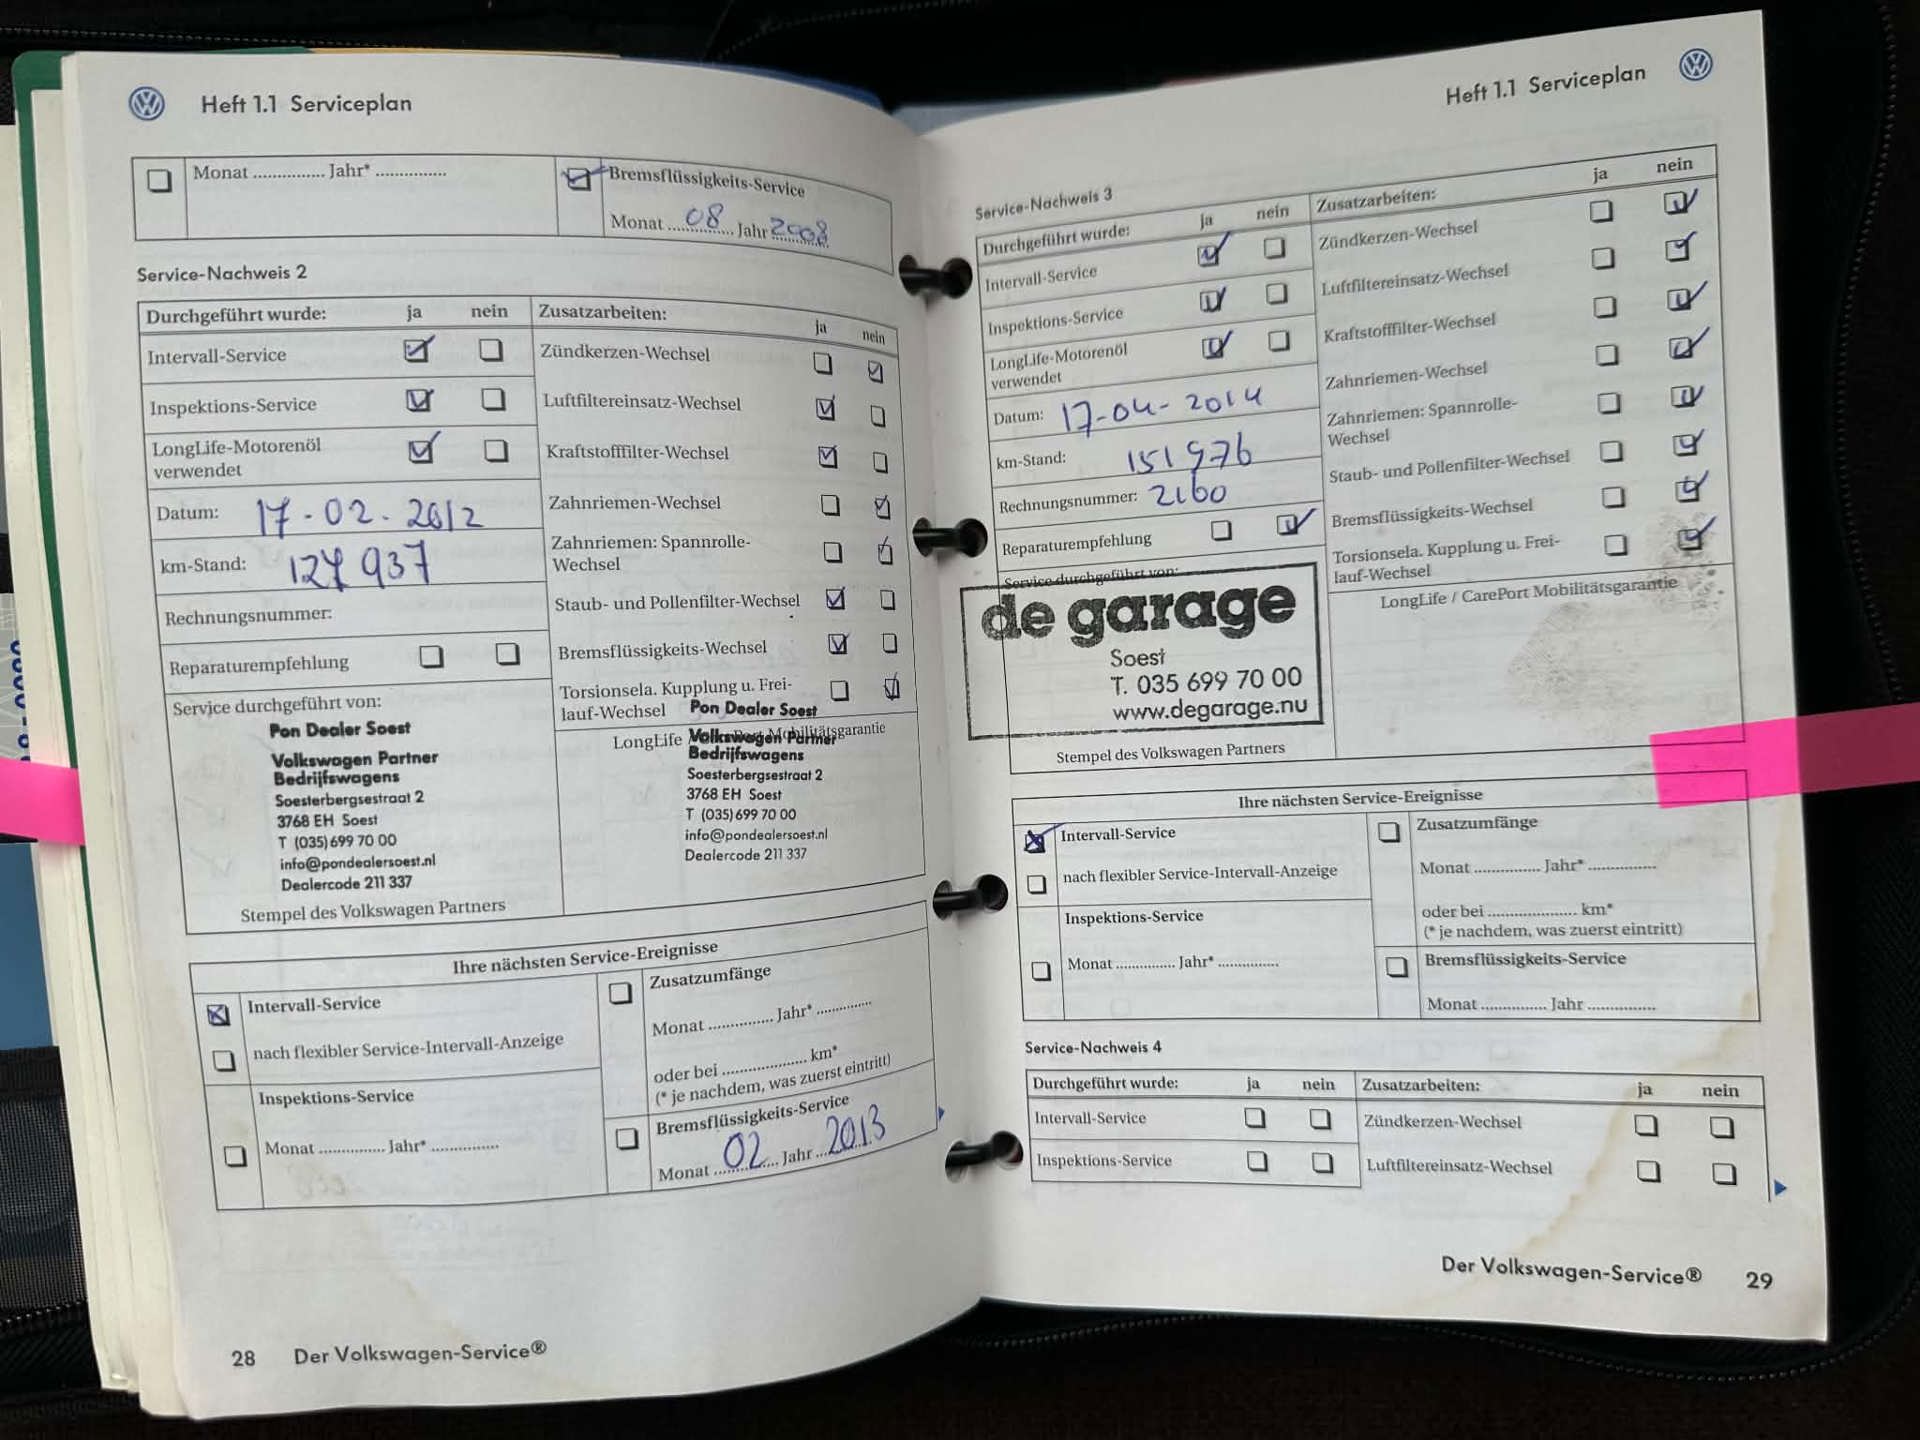 Heft 1.1 Serviceplan
Monat ............... Jahr* ...............
Bremsflüssigkeits-Service
Monat 08 Jahr 2008
Service-Nachweis 2
Durchgeführt wurde: ja nein
Intervall-Service
Inspektions-Service
LongLife-Motorenöl
verwendet
Datum: 17-02-2012
km-Stand: 127 937
Rechnungsnummer:
Reparaturempfehlung
Service durchgeführt von:
Pon Dealer Soest
Volkswagen Partner
Bedrijfswagens
Soesterbergsestraat 2
3768 EH Soest
T (035) 699 70 00
info@pondealersoest.nl
Dealercode 211 337
Stempel des Volkswagen Partners
Zusatzarbeiten: ja nein
Zündkerzen-Wechsel
Luftfiltereinsatz-Wechsel
Kraftstofffilter-Wechsel
Zahnriemen-Wechsel
Zahnriemen: Spannrolle-
Wechsel
Staub- und Pollenfilter-Wechsel
Bremsflüssigkeits-Wechsel
Torsionsela. Kupplung u. Frei-
lauf-Wechsel
Pon Dealer Soest
LongLife / Mobilitätsgarantie
Volkswagen Partner
Bedrijfswagens
Soesterbergsestraat 2
3768 EH Soest
T (035) 699 70 00
info@pondealersoest.nl
Dealercode 211 337
Ihre nächsten Service-Ereignisse
Intervall-Service
nach flexibler Service-Intervall-Anzeige
Inspektions-Service
Monat ............... Jahr* ...............
Zusatzumfänge
Monat ............... Jahr* ............
oder bei .................... km*
(* je nachdem, was zuerst eintritt)
Bremsflüssigkeits-Service
Monat 02 Jahr 2013
28 Der Volkswagen-Service®
Heft 1.1 Serviceplan
Service-Nachweis 3
Durchgeführt wurde: ja nein
Intervall-Service
Inspektions-Service
LongLife-Motorenöl
verwendet
Datum: 17-04-2014
km-Stand: 151976
Rechnungsnummer: 2160
Reparaturempfehlung
Service durchgeführt von:
de garage
Soest
T. 035 699 70 00
www.degarage.nu
Stempel des Volkswagen Partners
Zusatzarbeiten: ja nein
Zündkerzen-Wechsel
Luftfiltereinsatz-Wechsel
Kraftstofffilter-Wechsel
Zahnriemen-Wechsel
Zahnriemen: Spannrolle-
Wechsel
Staub- und Pollenfilter-Wechsel
Bremsflüssigkeits-Wechsel
Torsionsela. Kupplung u. Frei-
lauf-Wechsel
LongLife / CarePort Mobilitätsgarantie
Ihre nächsten Service-Ereignisse
Intervall-Service
nach flexibler Service-Intervall-Anzeige
Inspektions-Service
Monat ............... Jahr* ...............
Zusatzumfänge
Monat ............... Jahr* ...............
oder bei .................... km*
(* je nachdem, was zuerst eintritt)
Bremsflüssigkeits-Service
Monat ............... Jahr ...............
Service-Nachweis 4
Durchgeführt wurde: ja nein
Intervall-Service
Inspektions-Service
Zusatzarbeiten: ja nein
Zündkerzen-Wechsel
Luftfiltereinsatz-Wechsel
Der Volkswagen-Service® 29